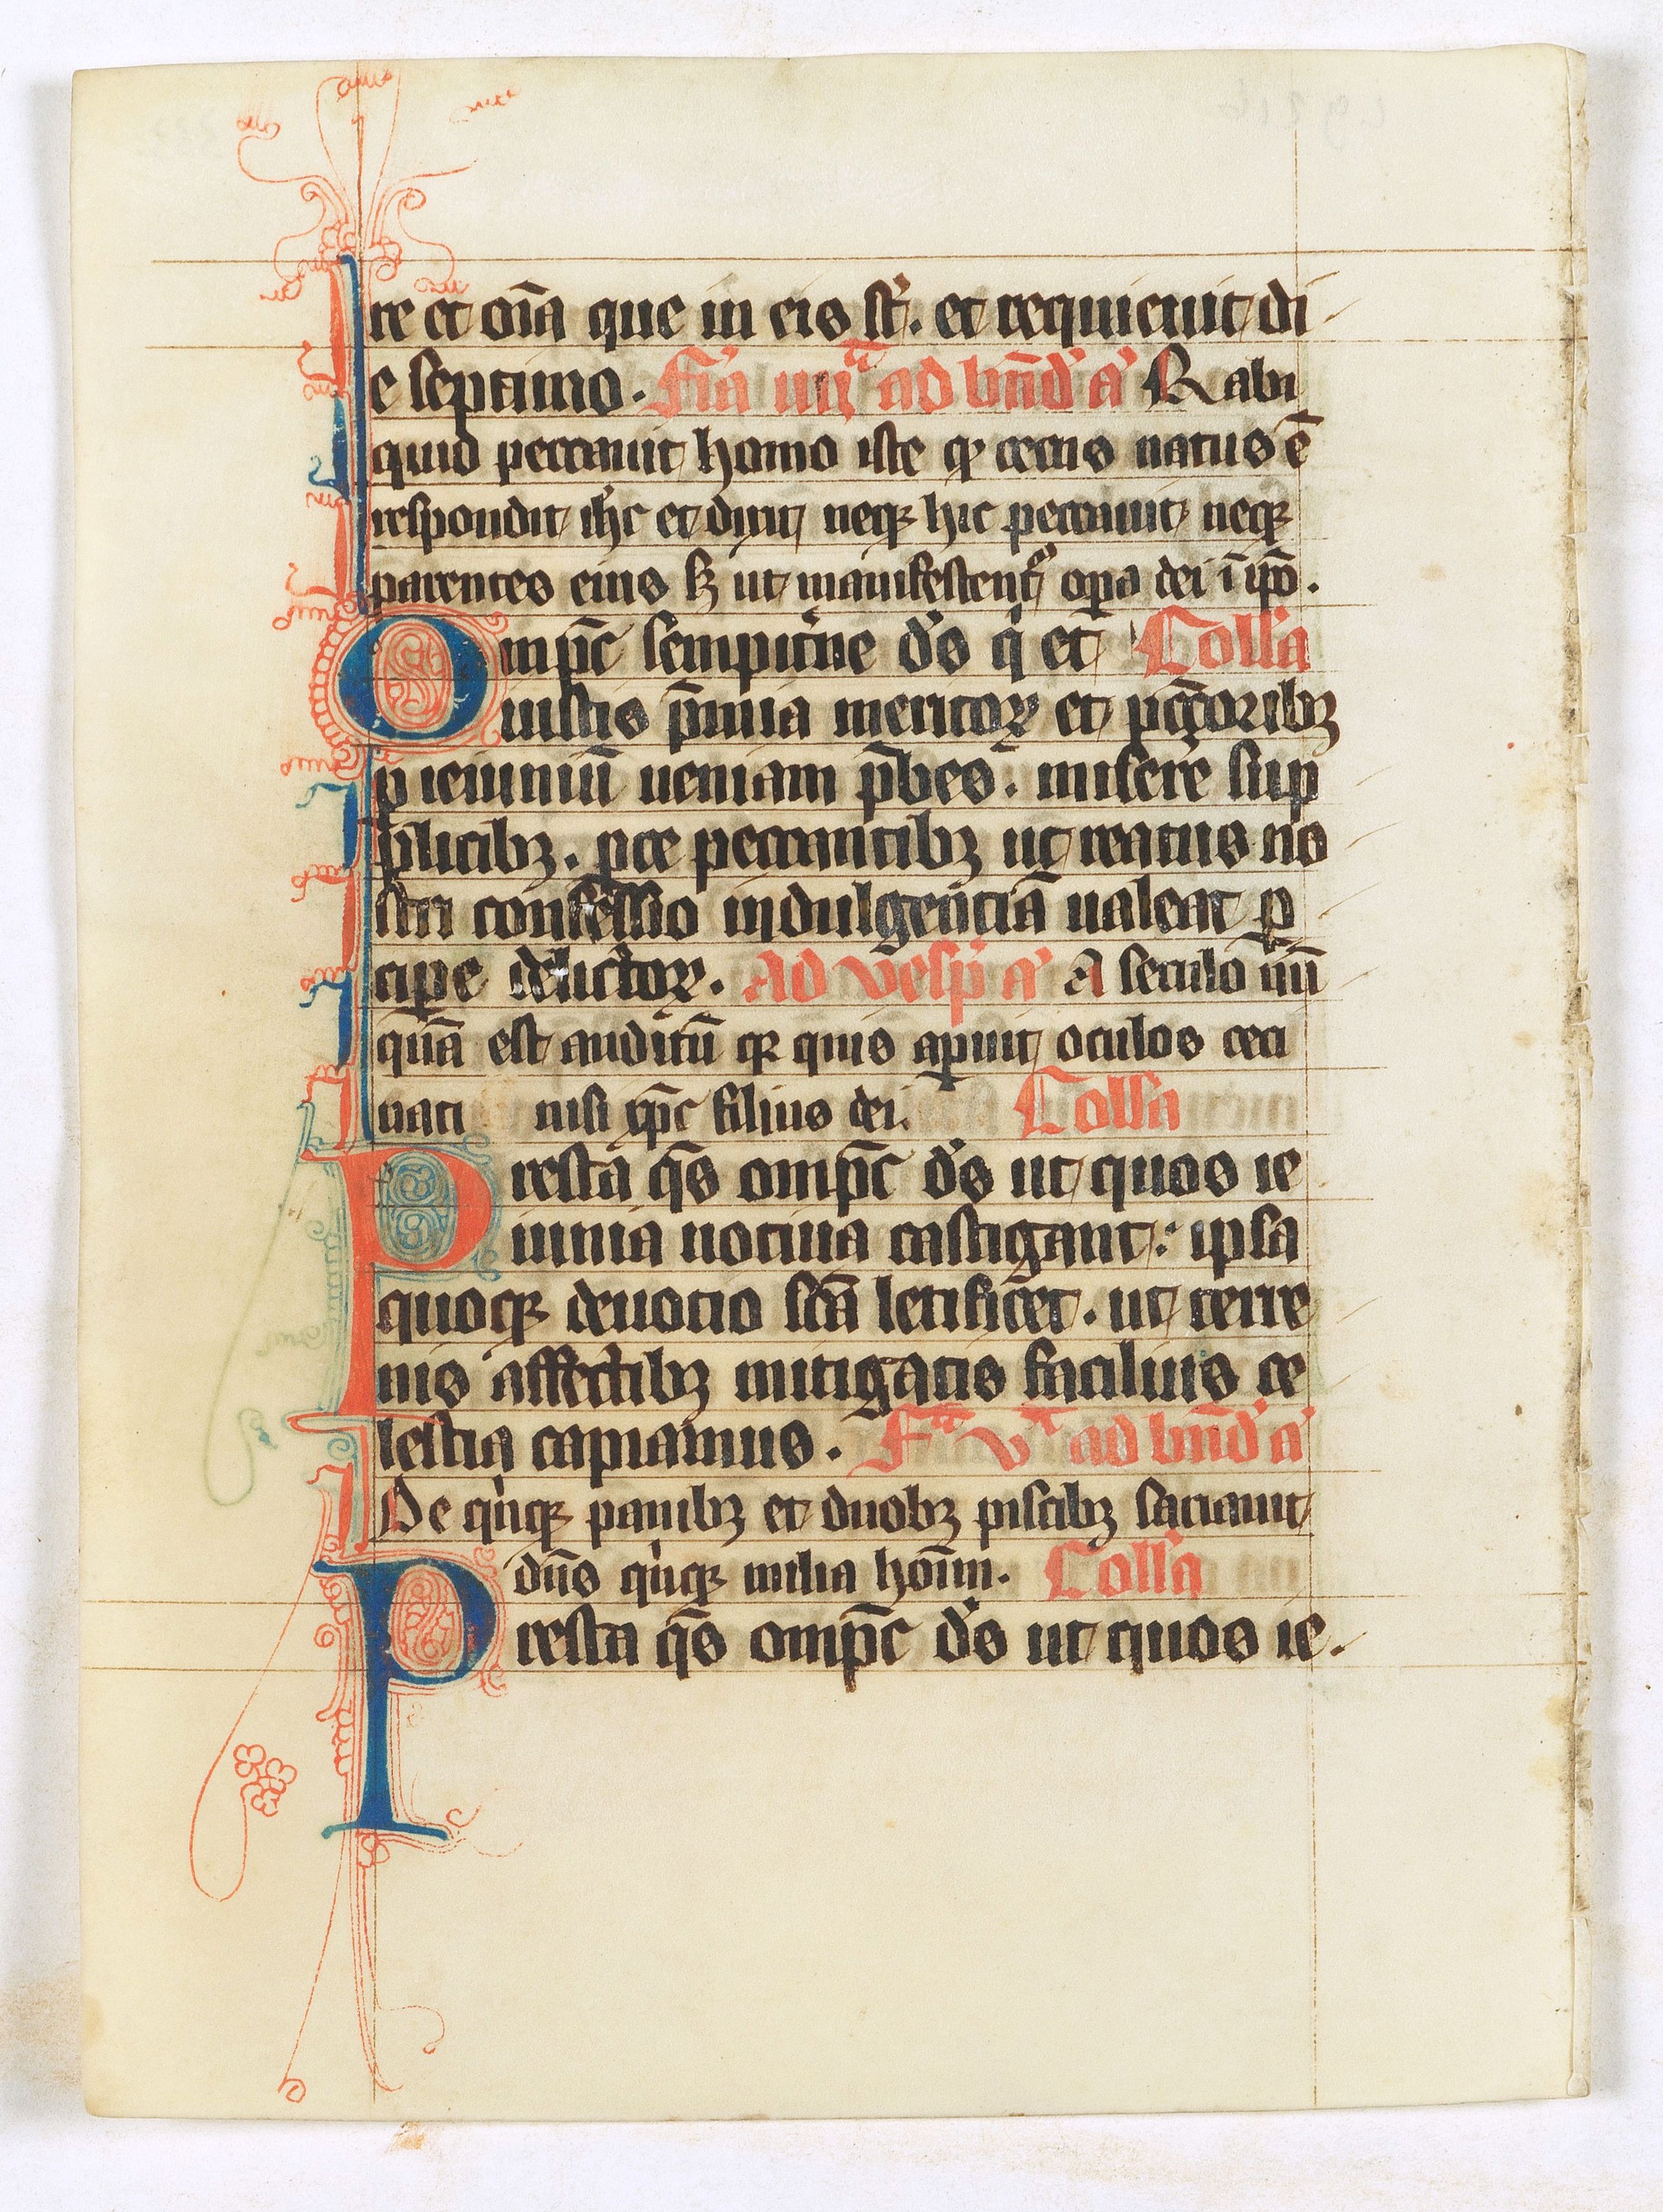 re et oīa que in eis st̄. et requieuit di
e septimo. Fīa iiijᵗᵃ ad bn̄d' a' Rabi
quid peccauit homo iste qꝫ cecus natus ē
respondit ih̄c et dixit neqꝫ hic peccauit neqꝫ
parentes eius sꝫ ut manifestent᷑ oꝑa dei ī ip̄o.
Omp̄c sempit'ne d's q' et Coll'a
iustis p̄mia meritoꝝ et pc̄c̄oribꝫ
ꝑ ieiuniū ueniam p̄bes. misere sup
plicibꝫ. ꝑce peccantibꝫ ut reatus no
stri confessio indulgentiā ualeat ꝑ
cipe delictoꝝ. Ad vesp' a' A seculo nū
quā est auditū qꝫ quis aꝑuit oculos ceci
nati nisi xp̄c filius dei. Coll'a
Presta q̄s omp̄c d's ut quos ie
iunia uotiua castigant: ipsa
quoqꝫ deuotio sc̄a letificet. ut terre
nis affectibꝫ mitigatis facilius ce
lestia capiamus. Fᵃ vᵗᵃ ad bn̄d' a'
De qi'nqꝫ panibꝫ et duobꝫ piscibꝫ saciauit
dn̄s qi'nqꝫ milia hoīm. Coll'a
Presta q̄s omp̄c d's ut quos ie.